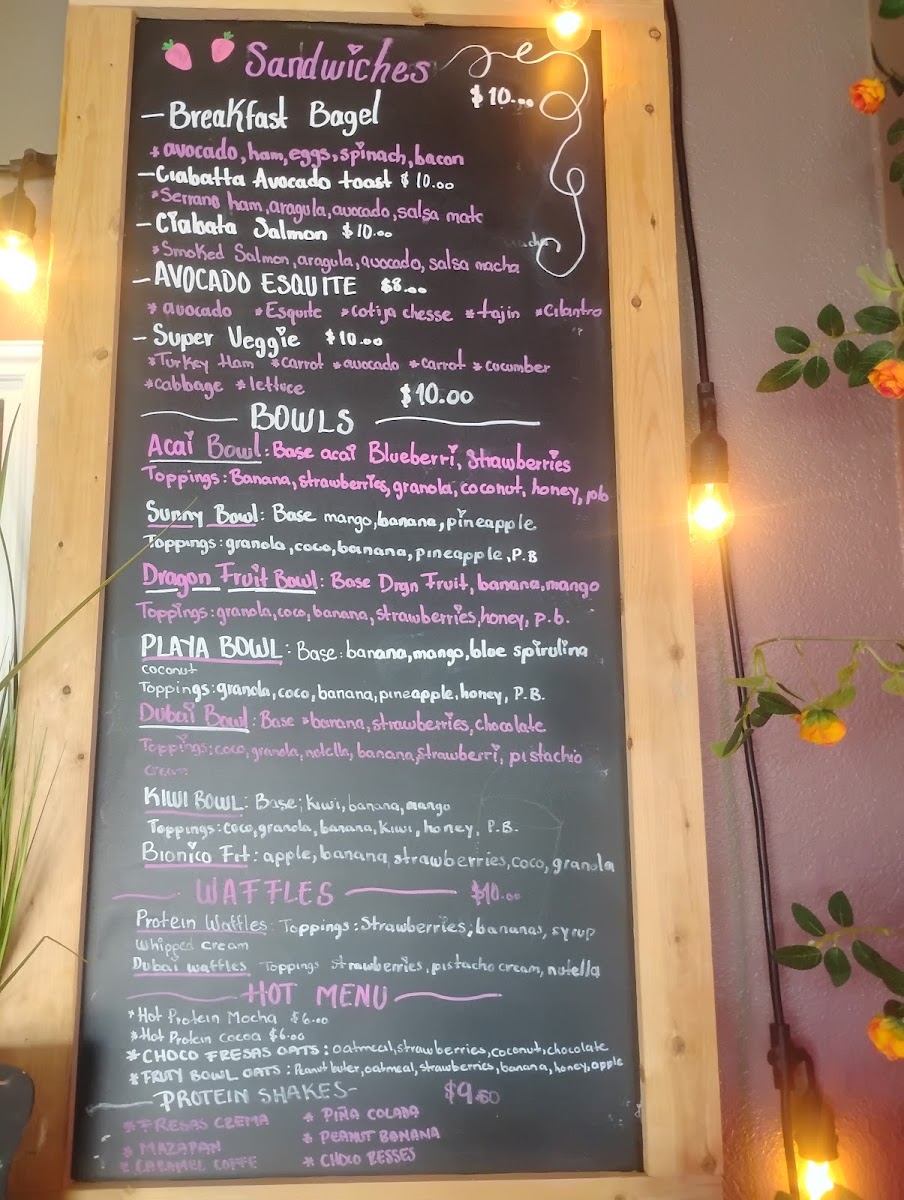 Sandwiches
$10.00
- Breakfast Bagel
* avocado, ham, eggs, spinach, bacon
- Ciabatta Avocado toast $10.00
* Serrano ham, aragula, avocado, salsa matc
- Ciabata Salmon $10.00
* Smoked Salmon, aragula, avocado, salsa macha
- AVOCADO ESQUITE $8.00
* avocado * Esquite * cotija chesse * tajin * Cilantro
- Super Veggie $10.00
* Turkey Ham * carrot * avocado * carrot * cucumber
* cabbage * lettuce
$10.00
BOWLS
Acai Bowl: Base acai Blueberri, Strawberries
Toppings: Banana, strawberries, granola, coconut, honey, pb
Sunny Bowl: Base mango, banana, pineapple
Toppings: granola, coco, banana, pineapple, P.B
Dragon Fruit Bowl: Base Drgn Fruit, banana, mango
Toppings: granola, coco, banana, strawberries, honey, P.b.
PLAYA BOWL: Base: banana, mango, bloe spirulina
coconut
Toppings: granola, coco, banana, pineapple, honey, P.B.
Dubai Bowl: Base * banana, strawberries, chocolate
Toppings: coco, granola, notella, banana, strawberri, pistachio
cream
KIWI BOWL: Base; kiwi, banana, mango
Toppings: coco, granola, banana, kiwi, honey, P.B.
Bionico Fit: apple, banana, strawberries, coco, granola
WAFFLES $10.00
Protein Waffles: Toppings: Strawberries, bananas, syrup
whipped cream
Dubai waffles Toppings Strawberries, pistacho cream, nutella
HOT MENU
* Hot Protein Mocha $6.00
* Hot Protein Cocoa $6.00
* CHOCO FRESAS OATS: oatmeal, strawberries, coconut, chocolate
* FRUTY BOWL OATS: Peanut buter, oatmeal, strawberries, banana, honey, apple
PROTEIN SHAKES- $9.50
* FRESAS CREMA * PIÑA COLADA
* MAZAPAN * PEANUT BANANA
* CARAMEL COFFE * CHOCO RESSES